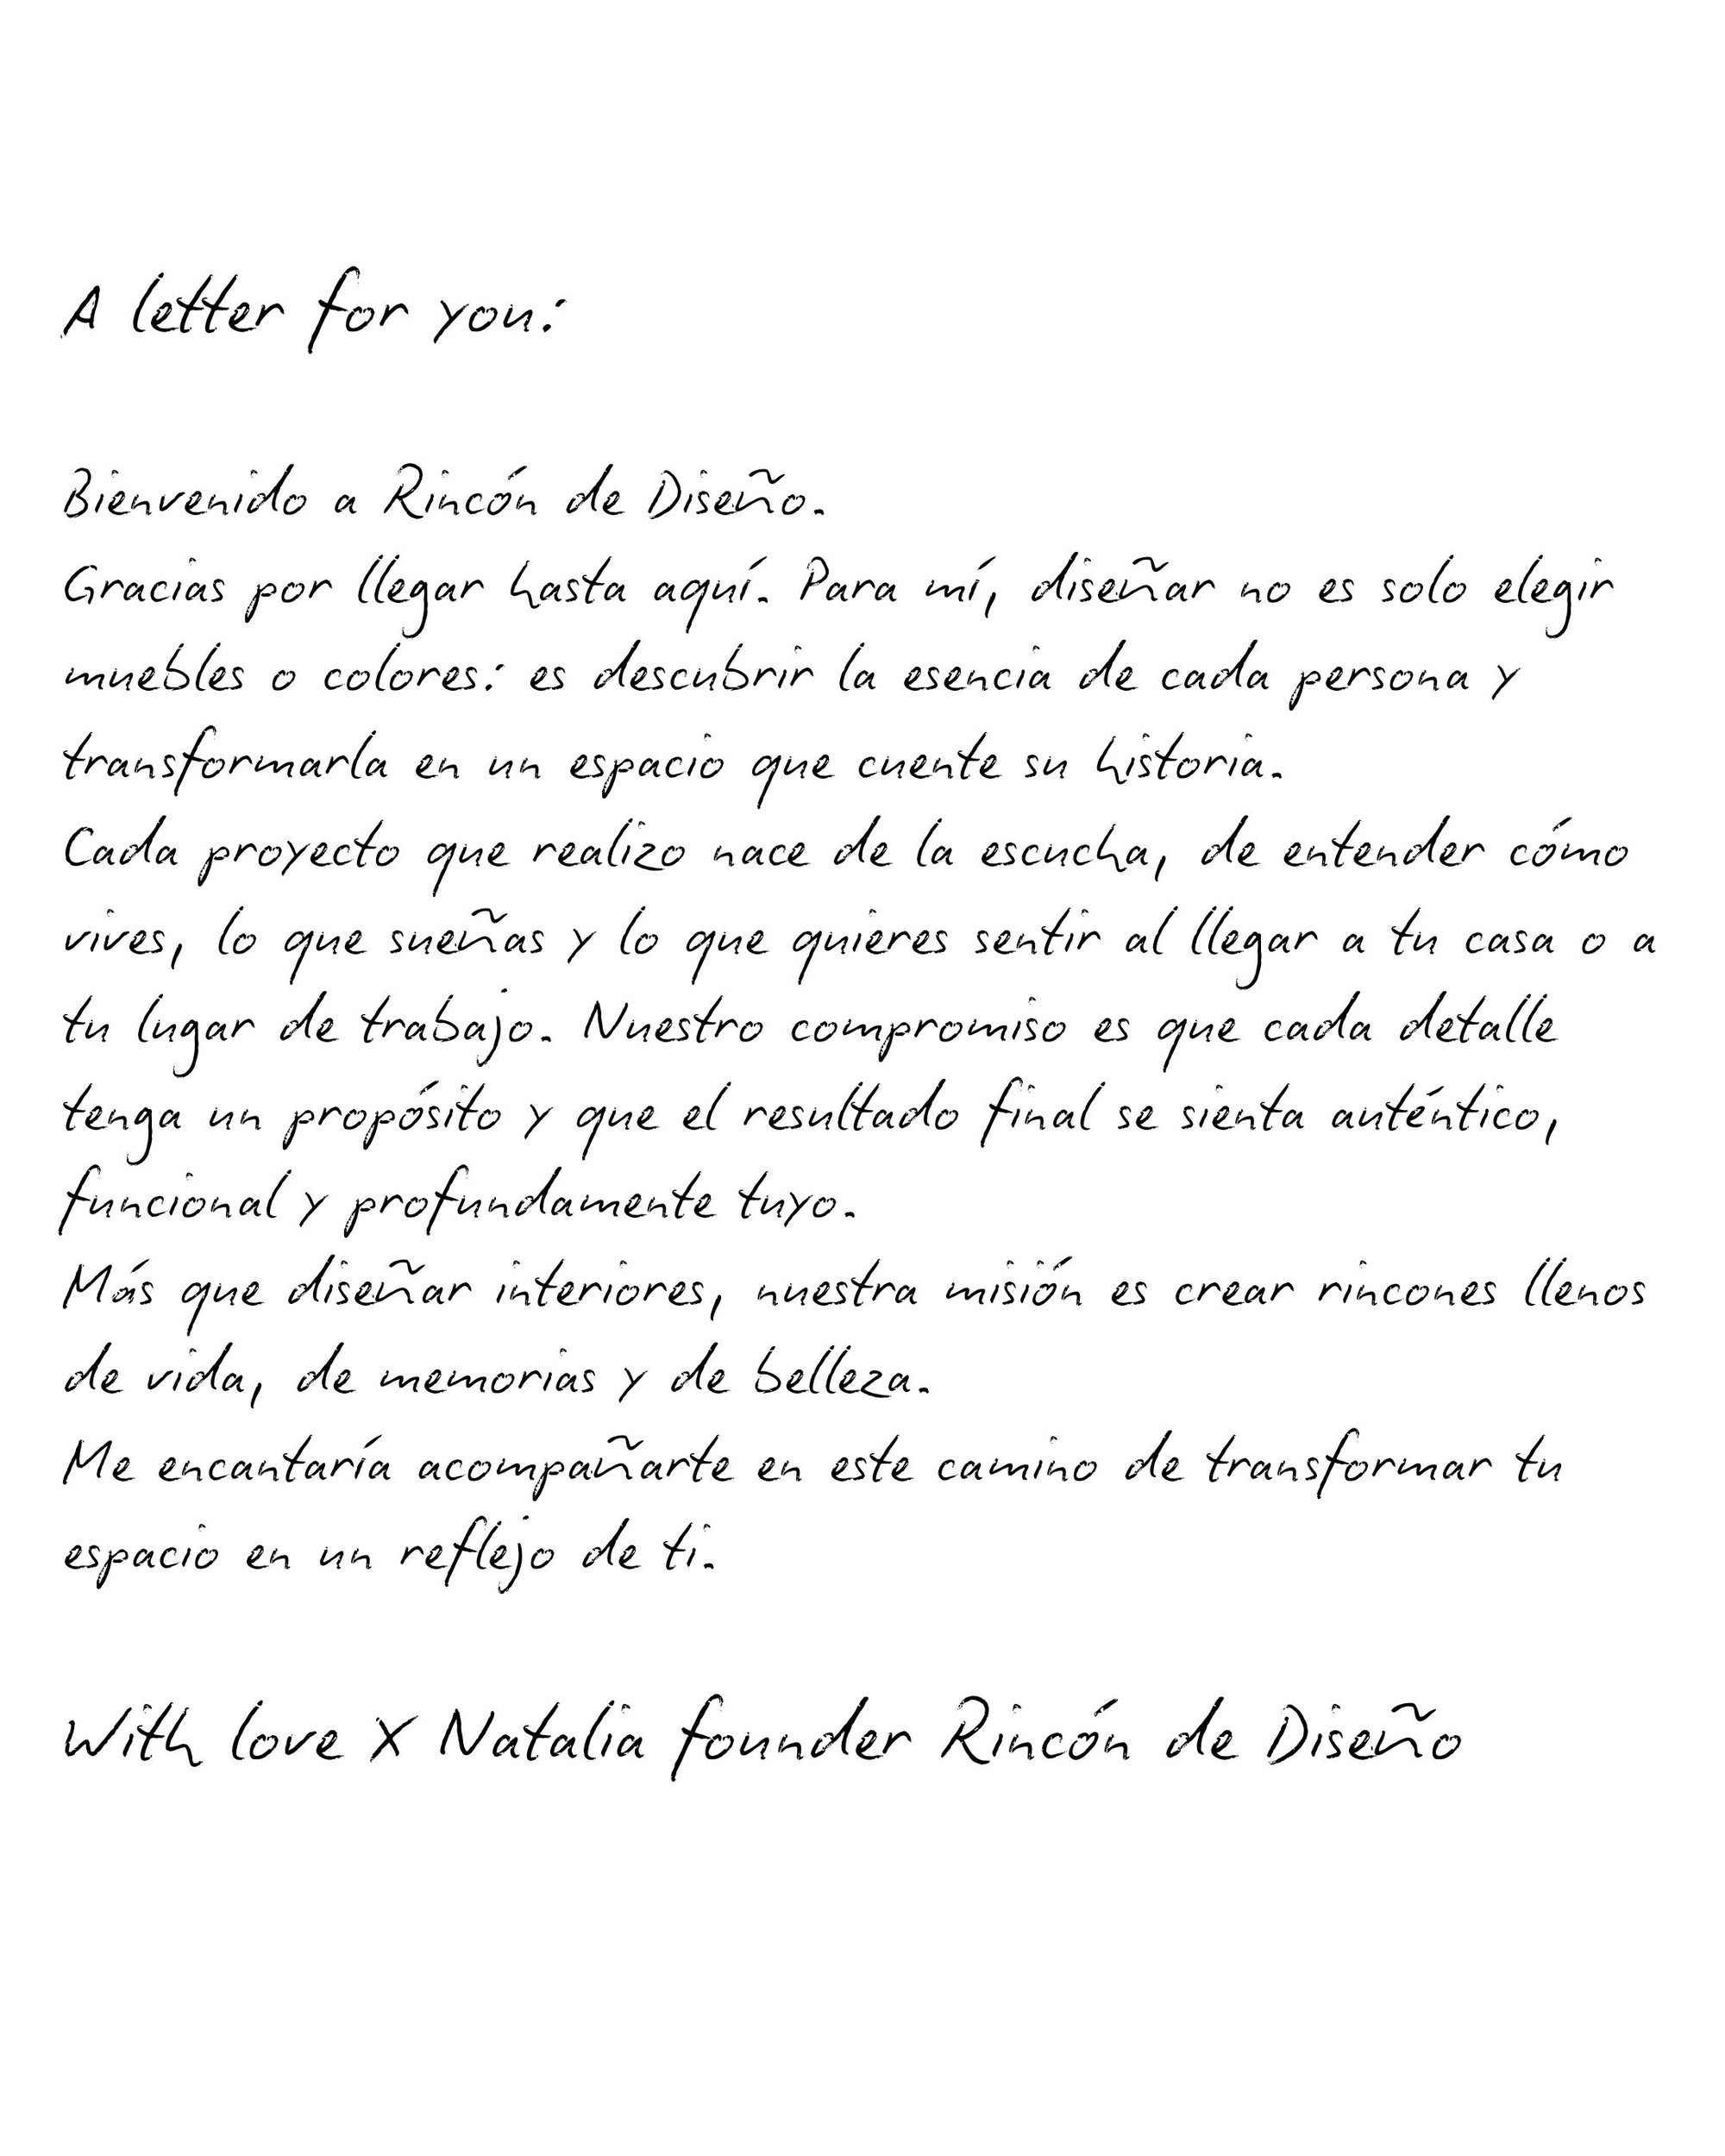 A letter for you:
Bienvenido a Rincón de Diseño.
Gracias por llegar hasta aquí. Para mí, diseñar no es solo elegir
muebles o colores: es descubrir la esencia de cada persona y
transformarla en un espacio que cuente su historia.
Cada proyecto que realizo nace de la escucha, de entender cómo
vives, lo que sueñas y lo que quieres sentir al llegar a tu casa o a
tu lugar de trabajo. Nuestro compromiso es que cada detalle
tenga un propósito y que el resultado final se sienta auténtico,
funcional y profundamente tuyo.
Más que diseñar interiores, nuestra misión es crear rincones llenos
de vida, de memorias y de belleza.
Me encantaría acompañarte en este camino de transformar tu
espacio en un reflejo de ti.
With love X Natalia founder Rincón de Diseño